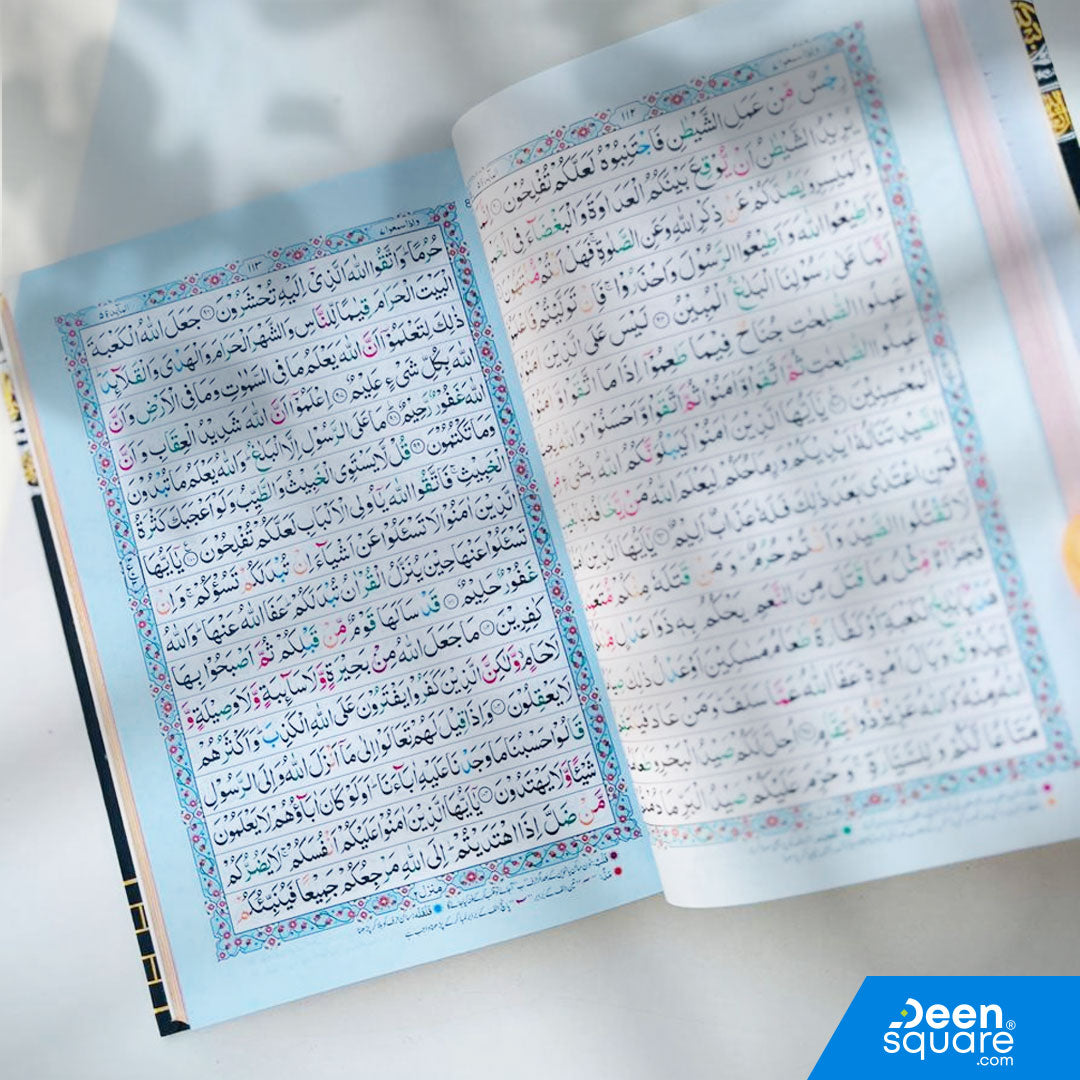 واذاسمعوا٧
١١٢
رِجۡسٌ مِّنۡ عَمَلِ الشَّيۡطٰنِ فَاجۡتَنِبُوۡهُ لَعَلَّكُمۡ تُفۡلِحُوۡنَ
يُرِيۡدُ الشَّيۡطٰنُ اَنۡ يُّوۡقِعَ بَيۡنَكُمُ الۡعَدَاوَةَ وَالۡبَغۡضَآءَ فِى
وَالۡمَيۡسِرِ وَيَصُدَّكُمۡ عَنۡ ذِكۡرِ اللّٰهِ وَعَنِ الصَّلٰوةِ ۚ فَهَلۡ اَنۡتُمۡ مُّنۡتَهُوۡنَ
وَاَطِيۡعُوا اللّٰهَ وَاَطِيۡعُوا الرَّسُوۡلَ وَاحۡذَرُوۡا ۚ فَاِنۡ تَوَلَّيۡتُمۡ
اَنَّمَا عَلٰى رَسُوۡلِنَا الۡبَلٰغُ الۡمُبِيۡنُ ۹۲ لَيۡسَ عَلَى الَّذِيۡنَ اٰمَنُوۡا
وَعَمِلُوا الصّٰلِحٰتِ جُنَاحٌ فِيۡمَا طَعِمُوۡۤا اِذَا مَا اتَّقَوْا وَّاٰمَنُوۡا
وَعَمِلُوا الصّٰلِحٰتِ ثُمَّ اتَّقَوْا وَّاٰمَنُوۡا ثُمَّ اتَّقَوْا وَّاَحۡسَنُوۡا ؕ وَاللّٰهُ
الۡمُحۡسِنِيۡنَ ۹۳ يٰۤاَيُّهَا الَّذِيۡنَ اٰمَنُوۡا لَيَبۡلُوَنَّكُمُ اللّٰهُ بِشَىۡءٍ
الصَّيۡدِ تَنَالُهٗۤ اَيۡدِيۡكُمۡ وَرِمَاحُكُمۡ لِيَعۡلَمَ اللّٰهُ مَنۡ يَّخَافُهٗ
فَمَنِ اعۡتَدٰى بَعۡدَ ذٰلِكَ فَلَهٗ عَذَابٌ اَلِيۡمٌ ۹۴ يٰۤاَيُّهَا الَّذِيۡنَ
لَا تَقۡتُلُوا الصَّيۡدَ وَاَنۡتُمۡ حُرُمٌ ؕ وَمَنۡ قَتَلَهٗ مِنۡكُمۡ
فَجَزَآءٌ مِّثۡلُ مَا قَتَلَ مِنَ النَّعَمِ يَحۡكُمُ بِهٖ ذَوَا عَدۡلٍ
هَدۡيًاۢ بٰلِغَ الۡكَعۡبَةِ اَوۡ كَفَّارَةٌ طَعَامُ مَسٰكِيۡنَ اَوۡ عَدۡلُ ذٰلِكَ
لِّيَذُوۡقَ وَبَالَ اَمۡرِهٖ ؕ عَفَا اللّٰهُ عَمَّا سَلَفَ ؕ وَمَنۡ عَادَ
اللّٰهُ مِنۡهُ ؕ وَاللّٰهُ عَزِيۡزٌ ذُو انۡتِقَامٍ ۹۵ اُحِلَّ لَكُمۡ صَيۡدُ الۡبَحۡرِ
مَتَاعًا لَّكُمۡ وَلِلسَّيَّارَةِ ۚ وَحُرِّمَ عَلَيۡكُمۡ صَيۡدُ الۡبَرِّ مَا
واذاسمعوا٧
١١٣
المآئدة ٥
حُرُمًا ؕ وَاتَّقُوا اللّٰهَ الَّذِىۡۤ اِلَيۡهِ تُحۡشَرُوۡنَ ۹۶ جَعَلَ اللّٰهُ الۡكَعۡبَةَ
الۡبَيۡتَ الۡحَرَامَ قِيٰمًا لِّلنَّاسِ وَالشَّهۡرَ الۡحَرَامَ وَالۡهَدۡىَ وَالۡقَلَآئِدَ ؕ
ذٰلِكَ لِتَعۡلَمُوۡۤا اَنَّ اللّٰهَ يَعۡلَمُ مَا فِى السَّمٰوٰتِ وَمَا فِى الۡاَرۡضِ وَاَنَّ
اللّٰهَ بِكُلِّ شَىۡءٍ عَلِيۡمٌ ۹۷ اِعۡلَمُوۡۤا اَنَّ اللّٰهَ شَدِيۡدُ الۡعِقَابِ وَاَنَّ
اللّٰهَ غَفُوۡرٌ رَّحِيۡمٌ ۹۸ مَا عَلَى الرَّسُوۡلِ اِلَّا الۡبَلٰغُ ؕ وَاللّٰهُ يَعۡلَمُ مَا تُبۡدُوۡنَ
وَمَا تَكۡتُمُوۡنَ ۹۹ قُلْ لَّا يَسۡتَوِى الۡخَبِيۡثُ وَالطَّيِّبُ وَلَوۡ اَعۡجَبَكَ كَثۡرَةُ
الۡخَبِيۡثِ ۚ فَاتَّقُوا اللّٰهَ يٰۤاُولِى الۡاَلۡبَابِ لَعَلَّكُمۡ تُفۡلِحُوۡنَ ۱۰۰ يٰۤاَيُّهَا
الَّذِيۡنَ اٰمَنُوۡا لَا تَسۡئَلُوۡا عَنۡ اَشۡيَآءَ اِنۡ تُبۡدَ لَكُمۡ تَسُؤۡكُمۡ ۚ وَاِنۡ
تَسۡئَلُوۡا عَنۡهَا حِيۡنَ يُنَزَّلُ الۡقُرۡاٰنُ تُبۡدَ لَكُمۡ ؕ عَفَا اللّٰهُ عَنۡهَا ؕ وَاللّٰهُ
غَفُوۡرٌ حَلِيۡمٌ ۱۰۱ قَدۡ سَاَلَهَا قَوۡمٌ مِّنۡ قَبۡلِكُمۡ ثُمَّ اَصۡبَحُوۡا بِهَا
كٰفِرِيۡنَ ۱۰۲ مَا جَعَلَ اللّٰهُ مِنۡۢ بَحِيۡرَةٍ وَّلَا سَآئِبَةٍ وَّلَا وَصِيۡلَةٍ وَّ
لَا حَامٍ ۙ وَّلٰكِنَّ الَّذِيۡنَ كَفَرُوۡا يَفۡتَرُوۡنَ عَلَى اللّٰهِ الۡكَذِبَ ؕ وَاَكۡثَرُهُمۡ
لَا يَعۡقِلُوۡنَ ۱۰۳ وَاِذَا قِيۡلَ لَهُمۡ تَعَالَوۡا اِلٰى مَاۤ اَنۡزَلَ اللّٰهُ وَاِلَى الرَّسُوۡلِ
قَالُوۡا حَسۡبُنَا مَا وَجَدۡنَا عَلَيۡهِ اٰبَآءَنَا ؕ اَوَلَوۡ كَانَ اٰبَآؤُهُمۡ لَا يَعۡلَمُوۡنَ
شَيۡئًا وَّلَا يَهۡتَدُوۡنَ ۱۰۴ يٰۤاَيُّهَا الَّذِيۡنَ اٰمَنُوۡا عَلَيۡكُمۡ اَنۡفُسَكُمۡ ۚ لَا يَضُرُّكُمۡ
مَّنۡ ضَلَّ اِذَا اهۡتَدَيۡتُمۡ ؕ اِلَى اللّٰهِ مَرۡجِعُكُمۡ جَمِيۡعًا فَيُنَبِّئُكُمۡ
منزل٢
Deen
square®
.com